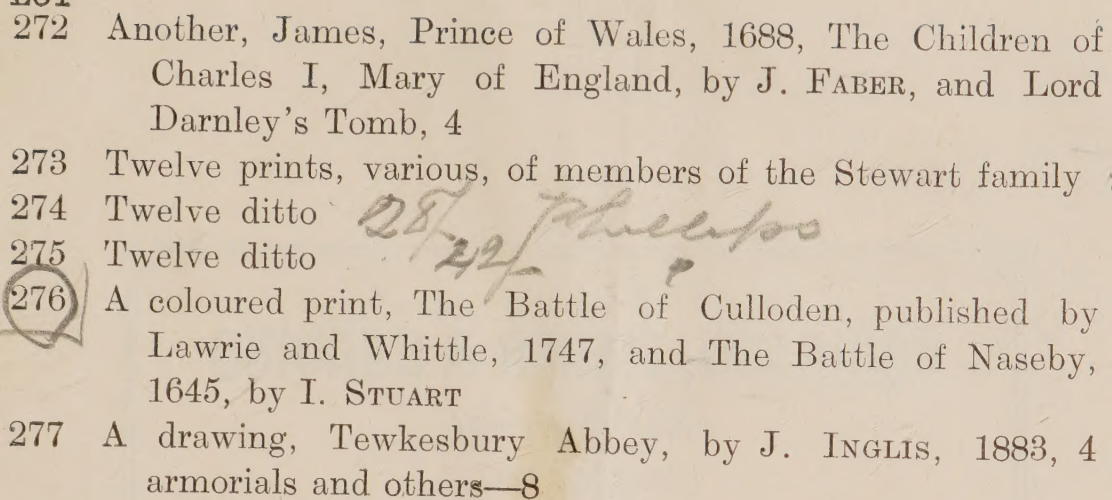 272 Another, James, Prince of Wales, 1688, The Children of
Charles I, Mary of England, by J. FABER, and Lord
Darnley's Tomb, 4
273 Twelve prints, various, of members of the Stewart family
274 Twelve ditto 28/ Phillips
275 Twelve ditto 22/
276 A coloured print, The Battle of Culloden, published by
Lawrie and Whittle, 1747, and The Battle of Naseby,
1645, by I. STUART
277 A drawing, Tewkesbury Abbey, by J. INGLIS, 1883, 4
armorials and others—8